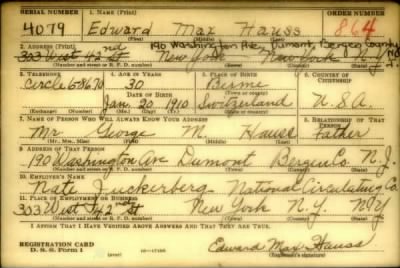 SERIAL NUMBER 1. NAME (Print)
4079 Edward Max Hauss 864
(First) (Middle) (Last)
2. ADDRESS (Print) 190 Washington Ave, Dumont, Bergen County, N.J.
303 West 42nd New York New York N.Y.
(Number and street or R. F. D. number) (Town) (County) (State)
3. TELEPHONE 4. AGE IN YEARS 5. PLACE OF BIRTH 6. COUNTRY OF CITIZENSHIP
Circle 6-8670 30 Berne
DATE OF BIRTH (Town or county)
Jan. 20 1910 Switzerland U.S.A.
(Exchange) (Number) (Mo.) (Day) (Yr.) (State or country)
7. NAME OF PERSON WHO WILL ALWAYS KNOW YOUR ADDRESS 8. RELATIONSHIP OF THAT PERSON
Mr George M. Hauss Father
(Mr., Mrs., Miss) (First) (Middle) (Last)
9. ADDRESS OF THAT PERSON
190 Washington Ave Dumont Bergen Co. N.J.
(Number and street or R. F. D. number) (Town) (County) (State)
10. EMPLOYER'S NAME
Nate Zuckerberg National Circulating Co.
11. PLACE OF EMPLOYMENT OR BUSINESS
303 West 42nd St New York N.Y. N.Y.
(Number and street or R. F. D. number) (Town) (County) (State)
I AFFIRM THAT I HAVE VERIFIED ABOVE ANSWERS AND THAT THEY ARE TRUE.
REGISTRATION CARD
D. S. S. Form 1 Edward Max Hauss
(Registrant's signature)